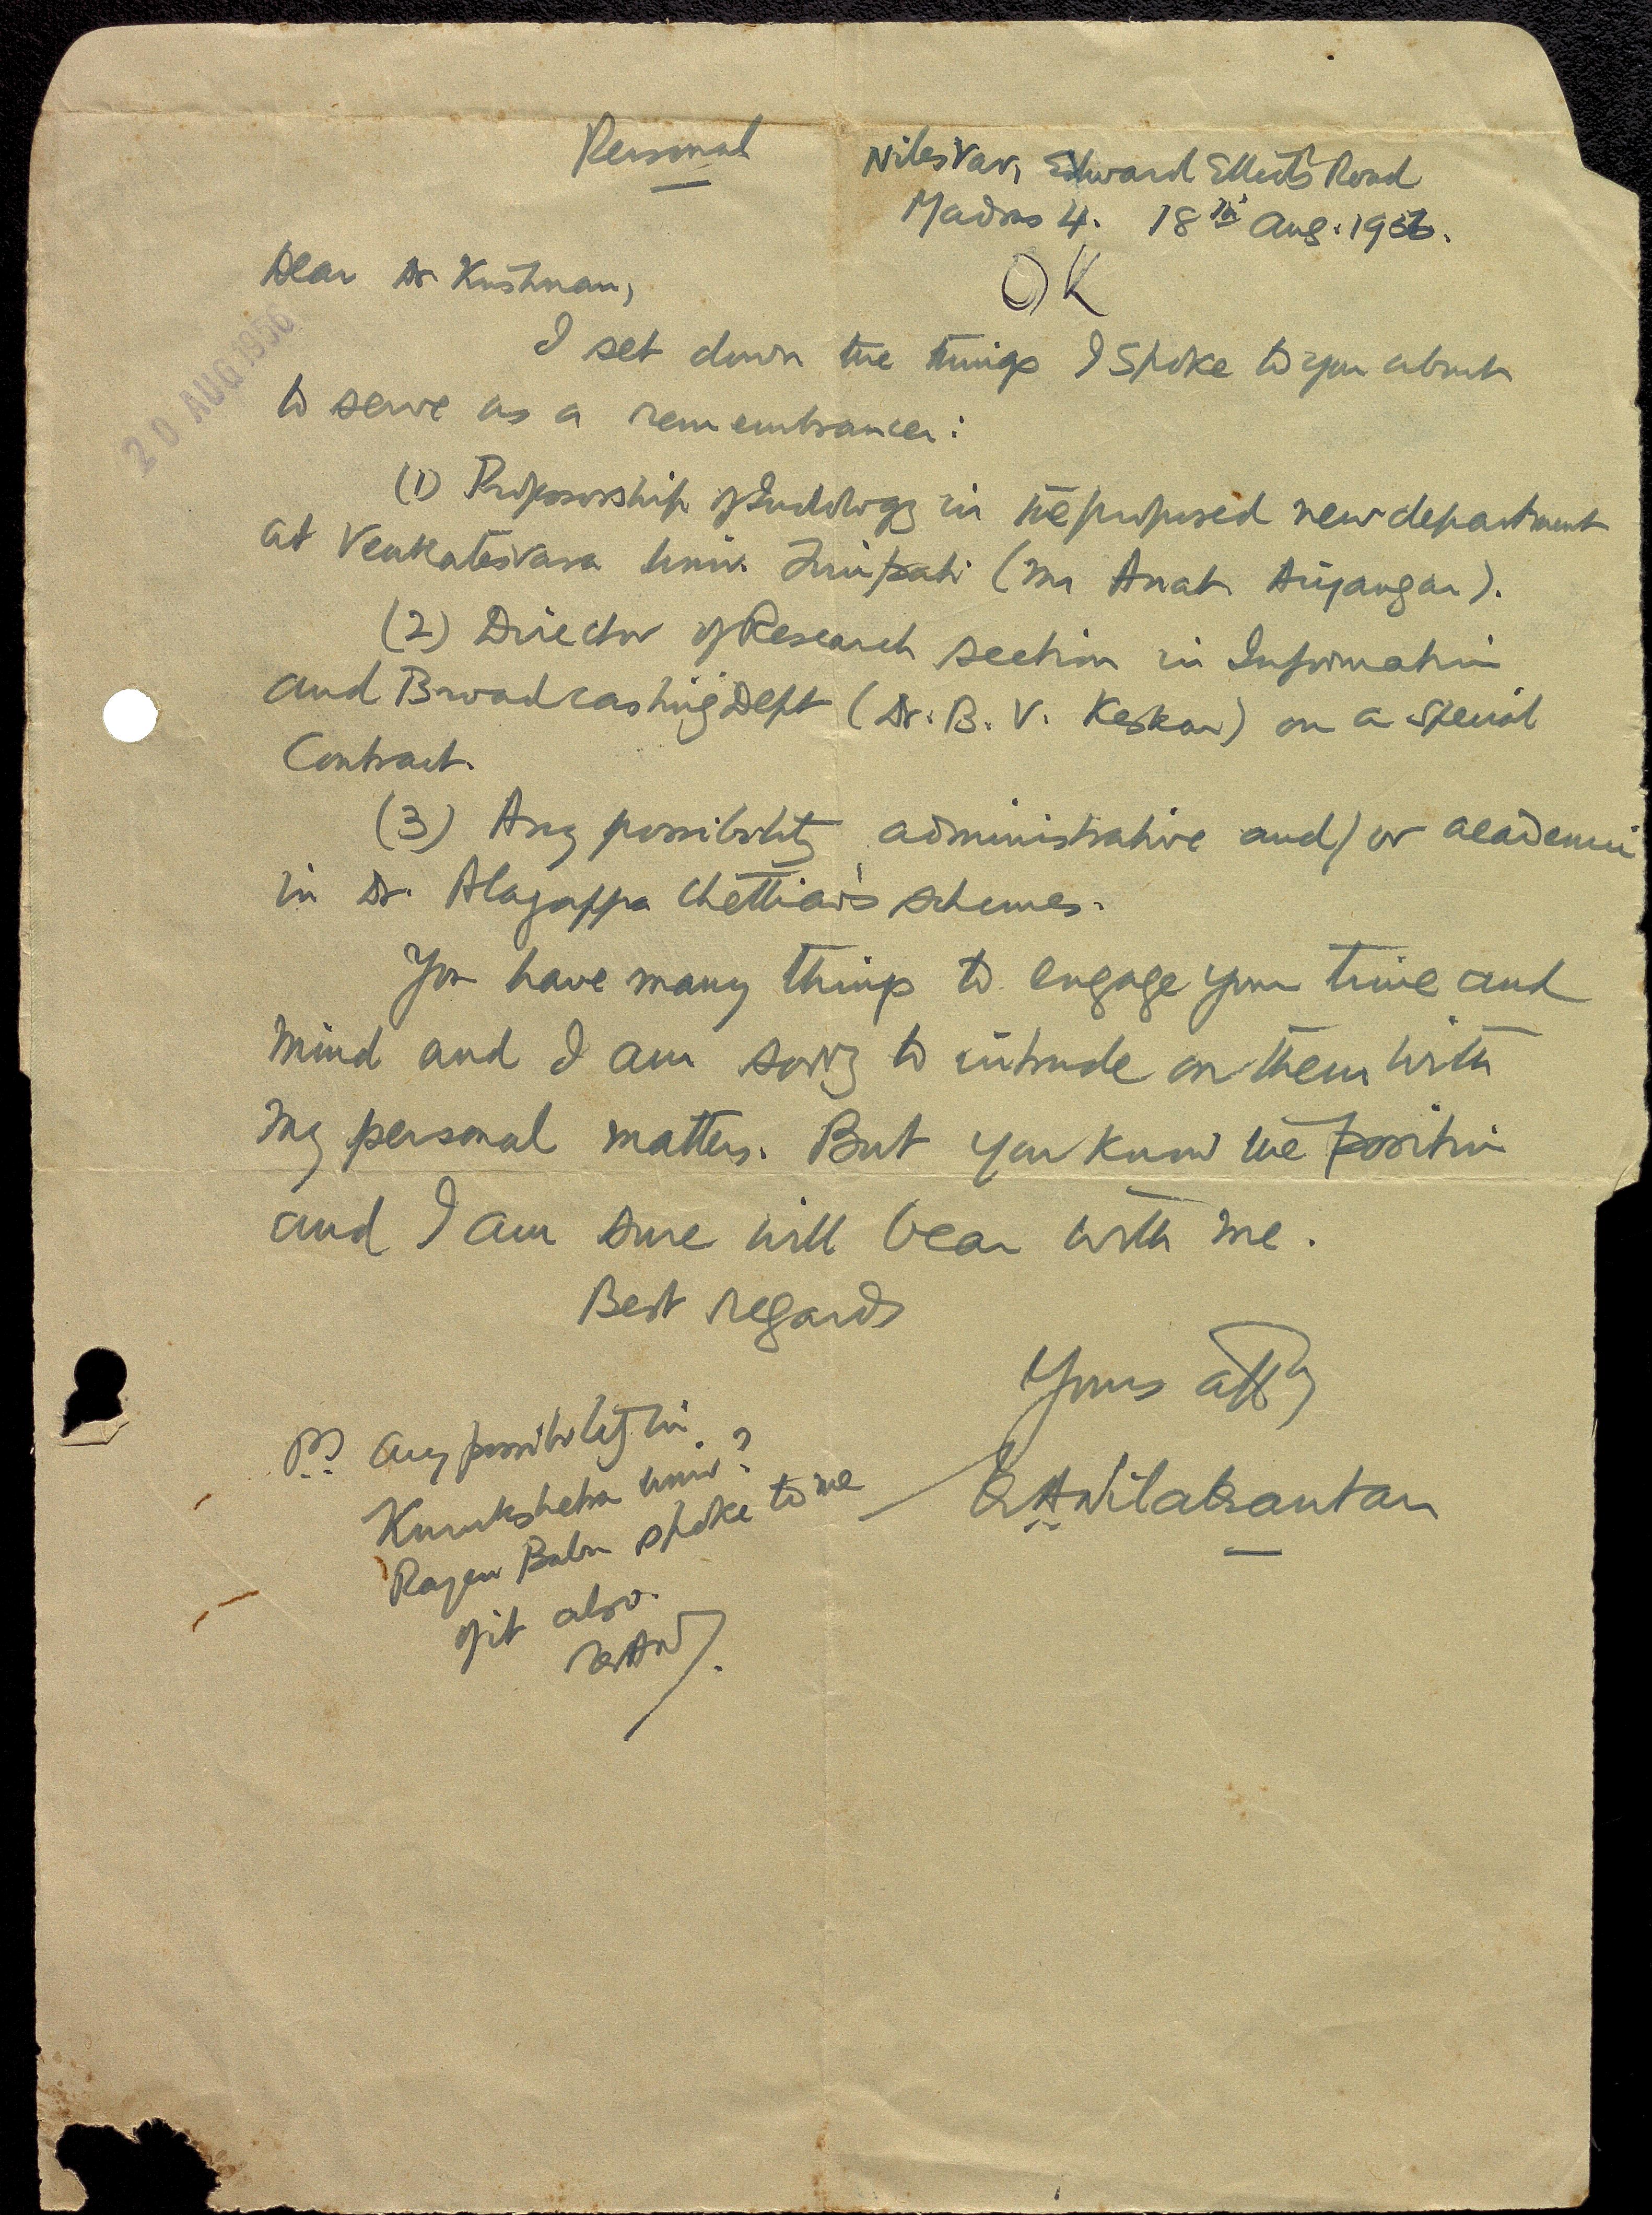 Personal
Nilesvar, Edward Elliots Road
Madras 4. 18th Aug. 1956.
OK
Dear Dr Krishnan,
20 AUG 1956
I set down the things I spoke to you about
to serve as a remembrancer:
(1) Professorship of Indology in the proposed new department
at Venkatesvara Univ. Tirupati (Mr Anath Aiyangar).
(2) Director of Research section in Information
and Broadcasting Dept (Dr. B. V. Keskar) on a special
Contract.
(3) Any possibility administrative and/or academic
in Dr. Alagappa Chettiar's schemes.
You have many things to engage your time and
mind and I am sorry to intrude on them with
my personal matters. But you know the position
and I am sure will bear with me.
Best regards
Yours affly
K A Nilakantan
PS Any possibility in
Kurukshetra Univ?
Rajen Babu spoke to me
of it also.
KAN